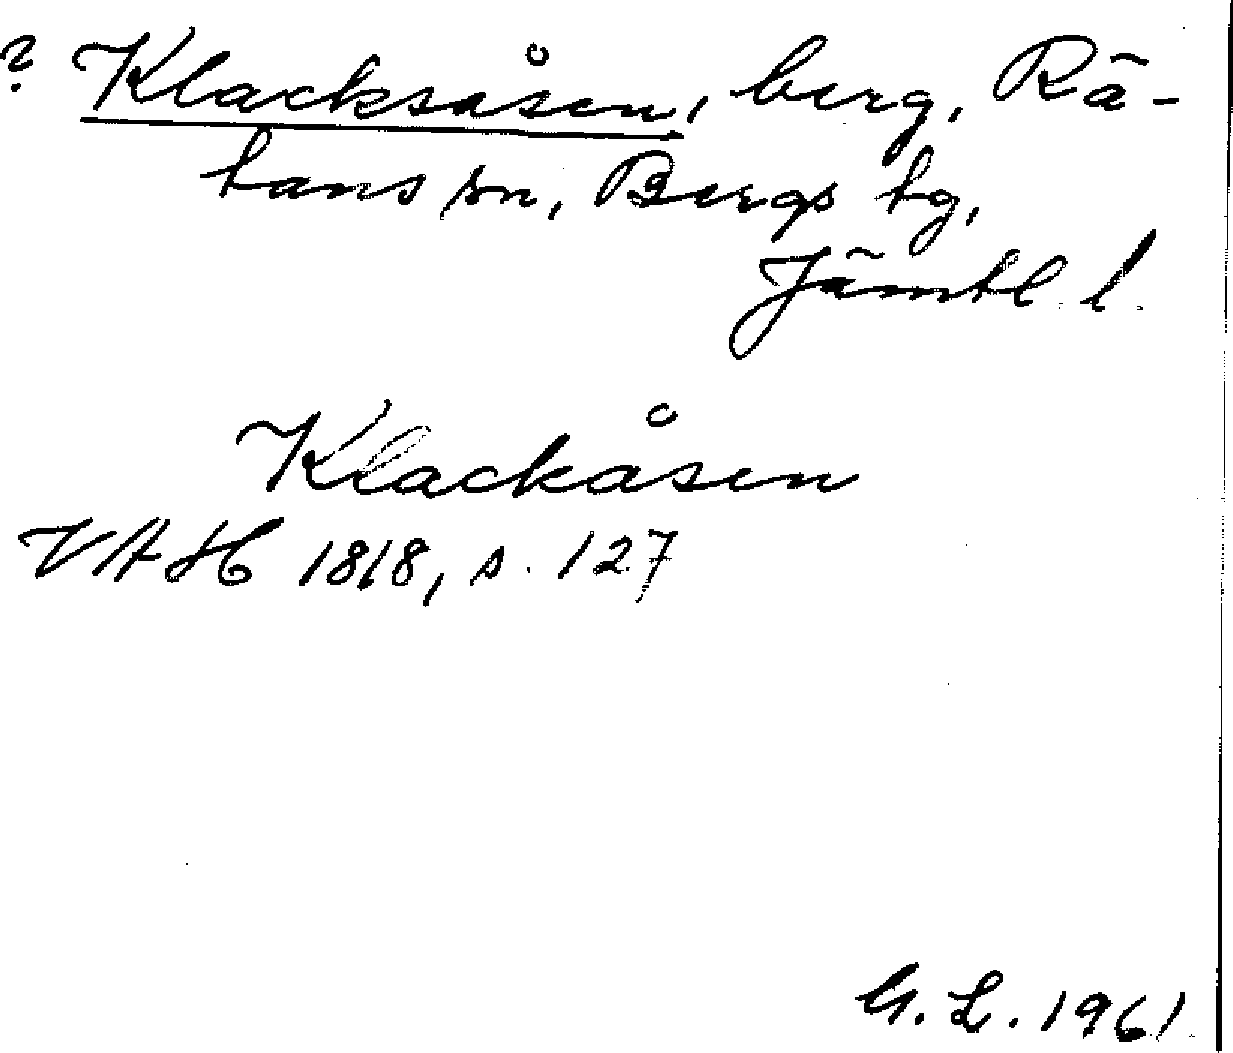 ? Klacksåsen, berg, Rä-
tans sn, Bergs tg,
Jämtl. l.
Klackåsen
VAH 1818, s. 127
G. L. 1961